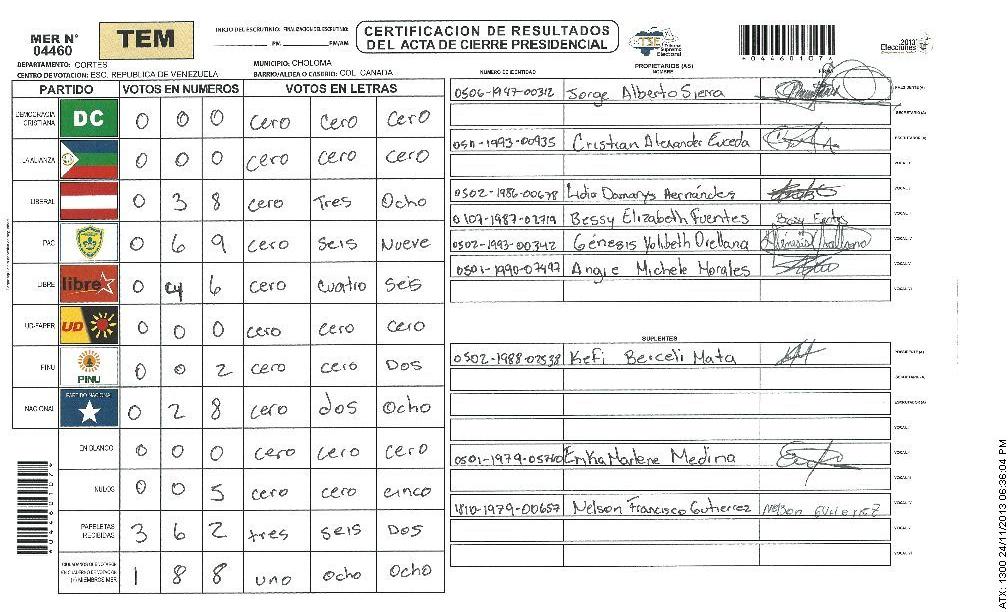 MER N° 04460
TEM
INICIO DEL ESCRUTINIO: FINALIZACION DEL ESCRUTINIO:
PM PM/AM
CERTIFICACION DE RESULTADOS
DEL ACTA DE CIERRE PRESIDENCIAL
TSE Tribunal Supremo Electoral
0446010 7
2013 Elecciones
DEPARTAMENTO: CORTES
MUNICIPIO: CHOLOMA
CENTRO DE VOTACION: ESC. REPUBLICA DE VENEZUELA
BARRIO/ALDEA O CASERIO: COL. CANADA
PARTIDO VOTOS EN NUMEROS VOTOS EN LETRAS
DEMOCRACIA CRISTIANA DC 0 0 0 cero cero cero
LA ALIANZA 0 0 0 cero cero cero
LIBERAL 0 3 8 cero Tres Ocho
PAC 0 6 9 cero seis Nueve
LIBRE libre 0 4 6 cero cuatro seis
UD-FAPER UD 0 0 0 cero cero cero
PINU PINU 0 0 2 cero cero Dos
NACIONAL PARTIDO NACIONAL 0 2 8 cero dos Ocho
EN BLANCO 0 0 0 cero cero cero
NULOS 0 0 5 cero cero cinco
PAPELETAS RECIBIDAS 3 6 2 tres seis Dos
1 8 8 uno Ocho Ocho
PROPIETARIOS (AS)
NUMERO DE IDENTIDAD NOMBRE FIRMA
0506-1947-00312 Jorge Alberto Sierra
0511-1993-00935 Cristian Alexander Euceda
0502-1986-00678 Lidia Damarys Hernándes
0107-1987-02719 Bessy Elizabeth Fuentes
0502-1993-00342 Génesis Yolibeth Orellana
0501-1990-07497 Angie Michele Morales
SUPLENTES
0502-1988-02538 Kefi Berceli Mata
0501-1979-05760 Erika Marlene Medina
1810-1979-00657 Nelson Francisco Gutierrez
ATX: 1300 24/11/2013 06:36:04 PM